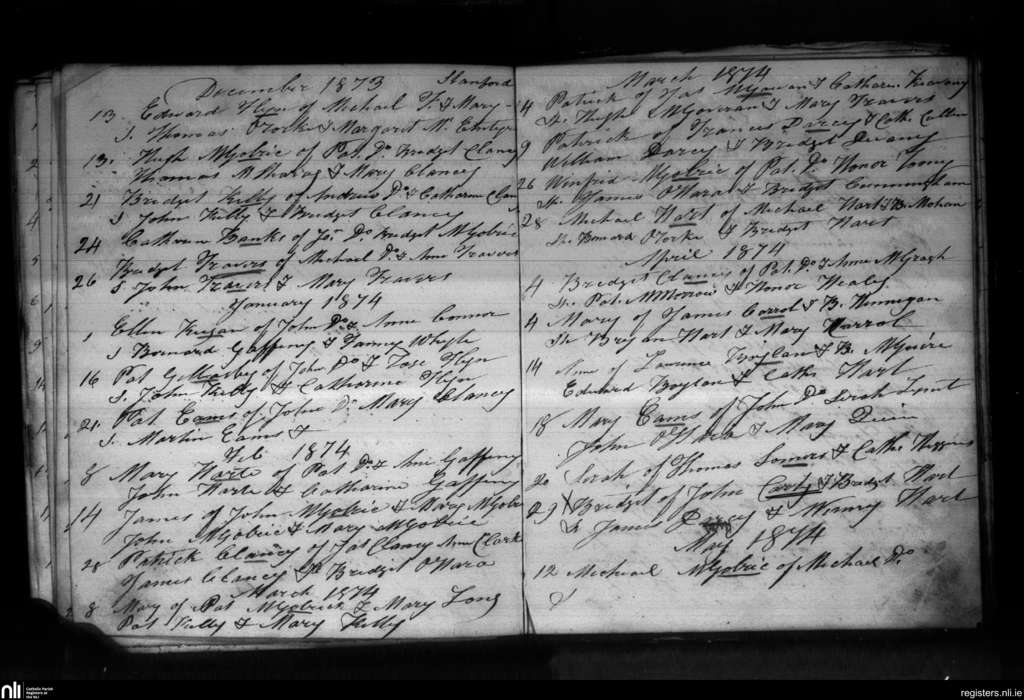 December 1873 Stanford
13. Edward Flyn of Michael F. & Mary
S. Thomas O'Rorke & Margaret Mc
13. Hugh McGobric of Pat. Do. Bridget Clancy
Thomas & Mary Clancy
21 Bridget Kelly of Andrew Do. & Catharine
S. John Kelly & Bridget Clancy
24 Banks of Jas. Do. Bridget McGobric
Bridget Travers of Michael Do. & Anne Travers
26 S. John Travers & Mary Travers
January 1874
1 Ellen of John Do. & Anne Connor
S Bernard Gaffeny & Whyle
16 Pat of John Do & Flyn
S. John Kelly & Catharine Flyn
21. Pat Eams of John Do. Mary Clancy
S. Martin Eams &
Feb 1874
8 Mary Harte of Pat Do. & Ann Gaffeny
John Harte & Catharine Gaffeny
14 James of John McGobric & Mary McGobric
John McGobric & Mary McGobric
28 Patrick Clancy of Clancy Ann Clark
James Clancy & Bridget O'Hara
March 1874
8 Mary of Pat McGobric & Mary Long
Pat Kelly & Mary Kelly
March 1874
4 Patrick of Jas McGowan & Catharine
Sp. Hugh McGowran & Mary Travers
9 Patrick of Francis Darcy & Cath. Cullen
William Darcy & Bridget
26 Winfrid McGobric of Pat. Do. Honor
Sp. James O'Hara & Bridget Cunningham
28 Michael Hart of Michael Hart & B. Mohan
Sp. Bernard O'Rorke & Bridget Hart
April 1874
4 Bridget Clancy of Pat. Do. & Anne McGragh
Sp. Pat. McMorrow & Honor Healy
4 Mary of James Carrol & B. Hennigan
Sp. Bryan Hart & Mary Carrol
14 Anne of Lawrence Boylan & B. McGuire
Edward Boylan & Cath. Hart
18 Mary Eams of John Do. Sarah
John O'Hara & Mary Quin
20 Sarah of Thomas Somers & Cath. Higgins
29 Bridget of John Carty & Bridget Hart
S. James Darcy & Winny Hart
May 1874
12 Micheal McGobric of Michael Do.
&
nli
Catholic Parish
Registers at
the NLI
registers.nli.ie